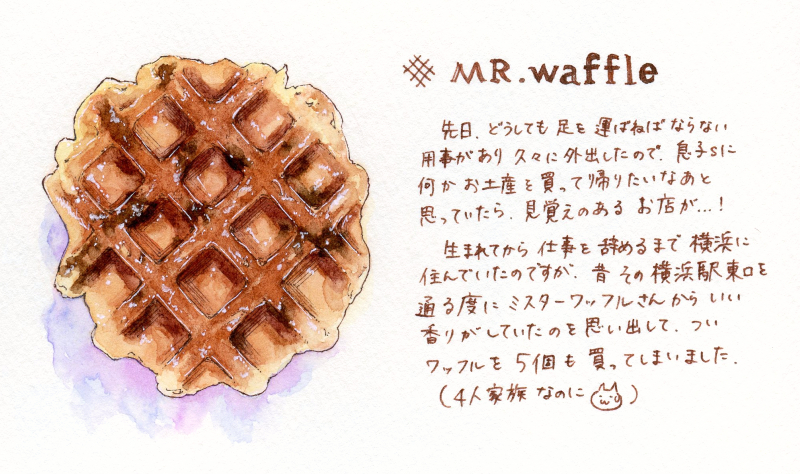 MR.waffle
先日、どうしても足を運ばねばならない
用事があり久々に外出したので、息子sに
何かお土産を買って帰りたいなあと
思っていたら、見覚えのあるお店が…!
生まれてから仕事を辞めるまで横浜に
住んでいたのですが、昔その横浜駅東口を
通る度にミスターワッフルさんからいい
香りがしていたのを思い出して、つい
ワッフルを5個も買ってしまいました.
(4人家族なのに)